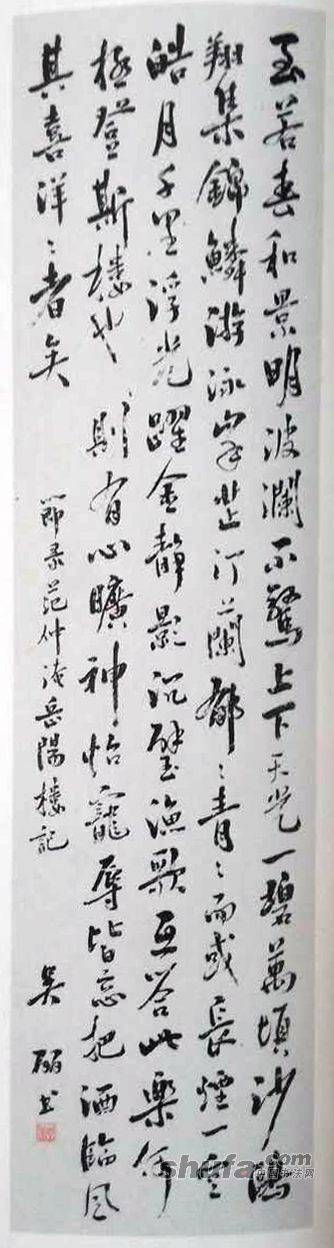 至若春和景明波瀾不驚上下天光一碧萬頃沙鷗
翔集錦鱗游泳岸芷汀蘭郁〻青〻而或長煙一空
皓月千里浮光躍金静影沉璧漁歌互答此樂何
極登斯樓也則有心曠神怡寵辱皆忘把酒臨風
其喜洋〻者矣
節录范仲淹岳陽樓記
吴
书
shufa.com
中国书法网